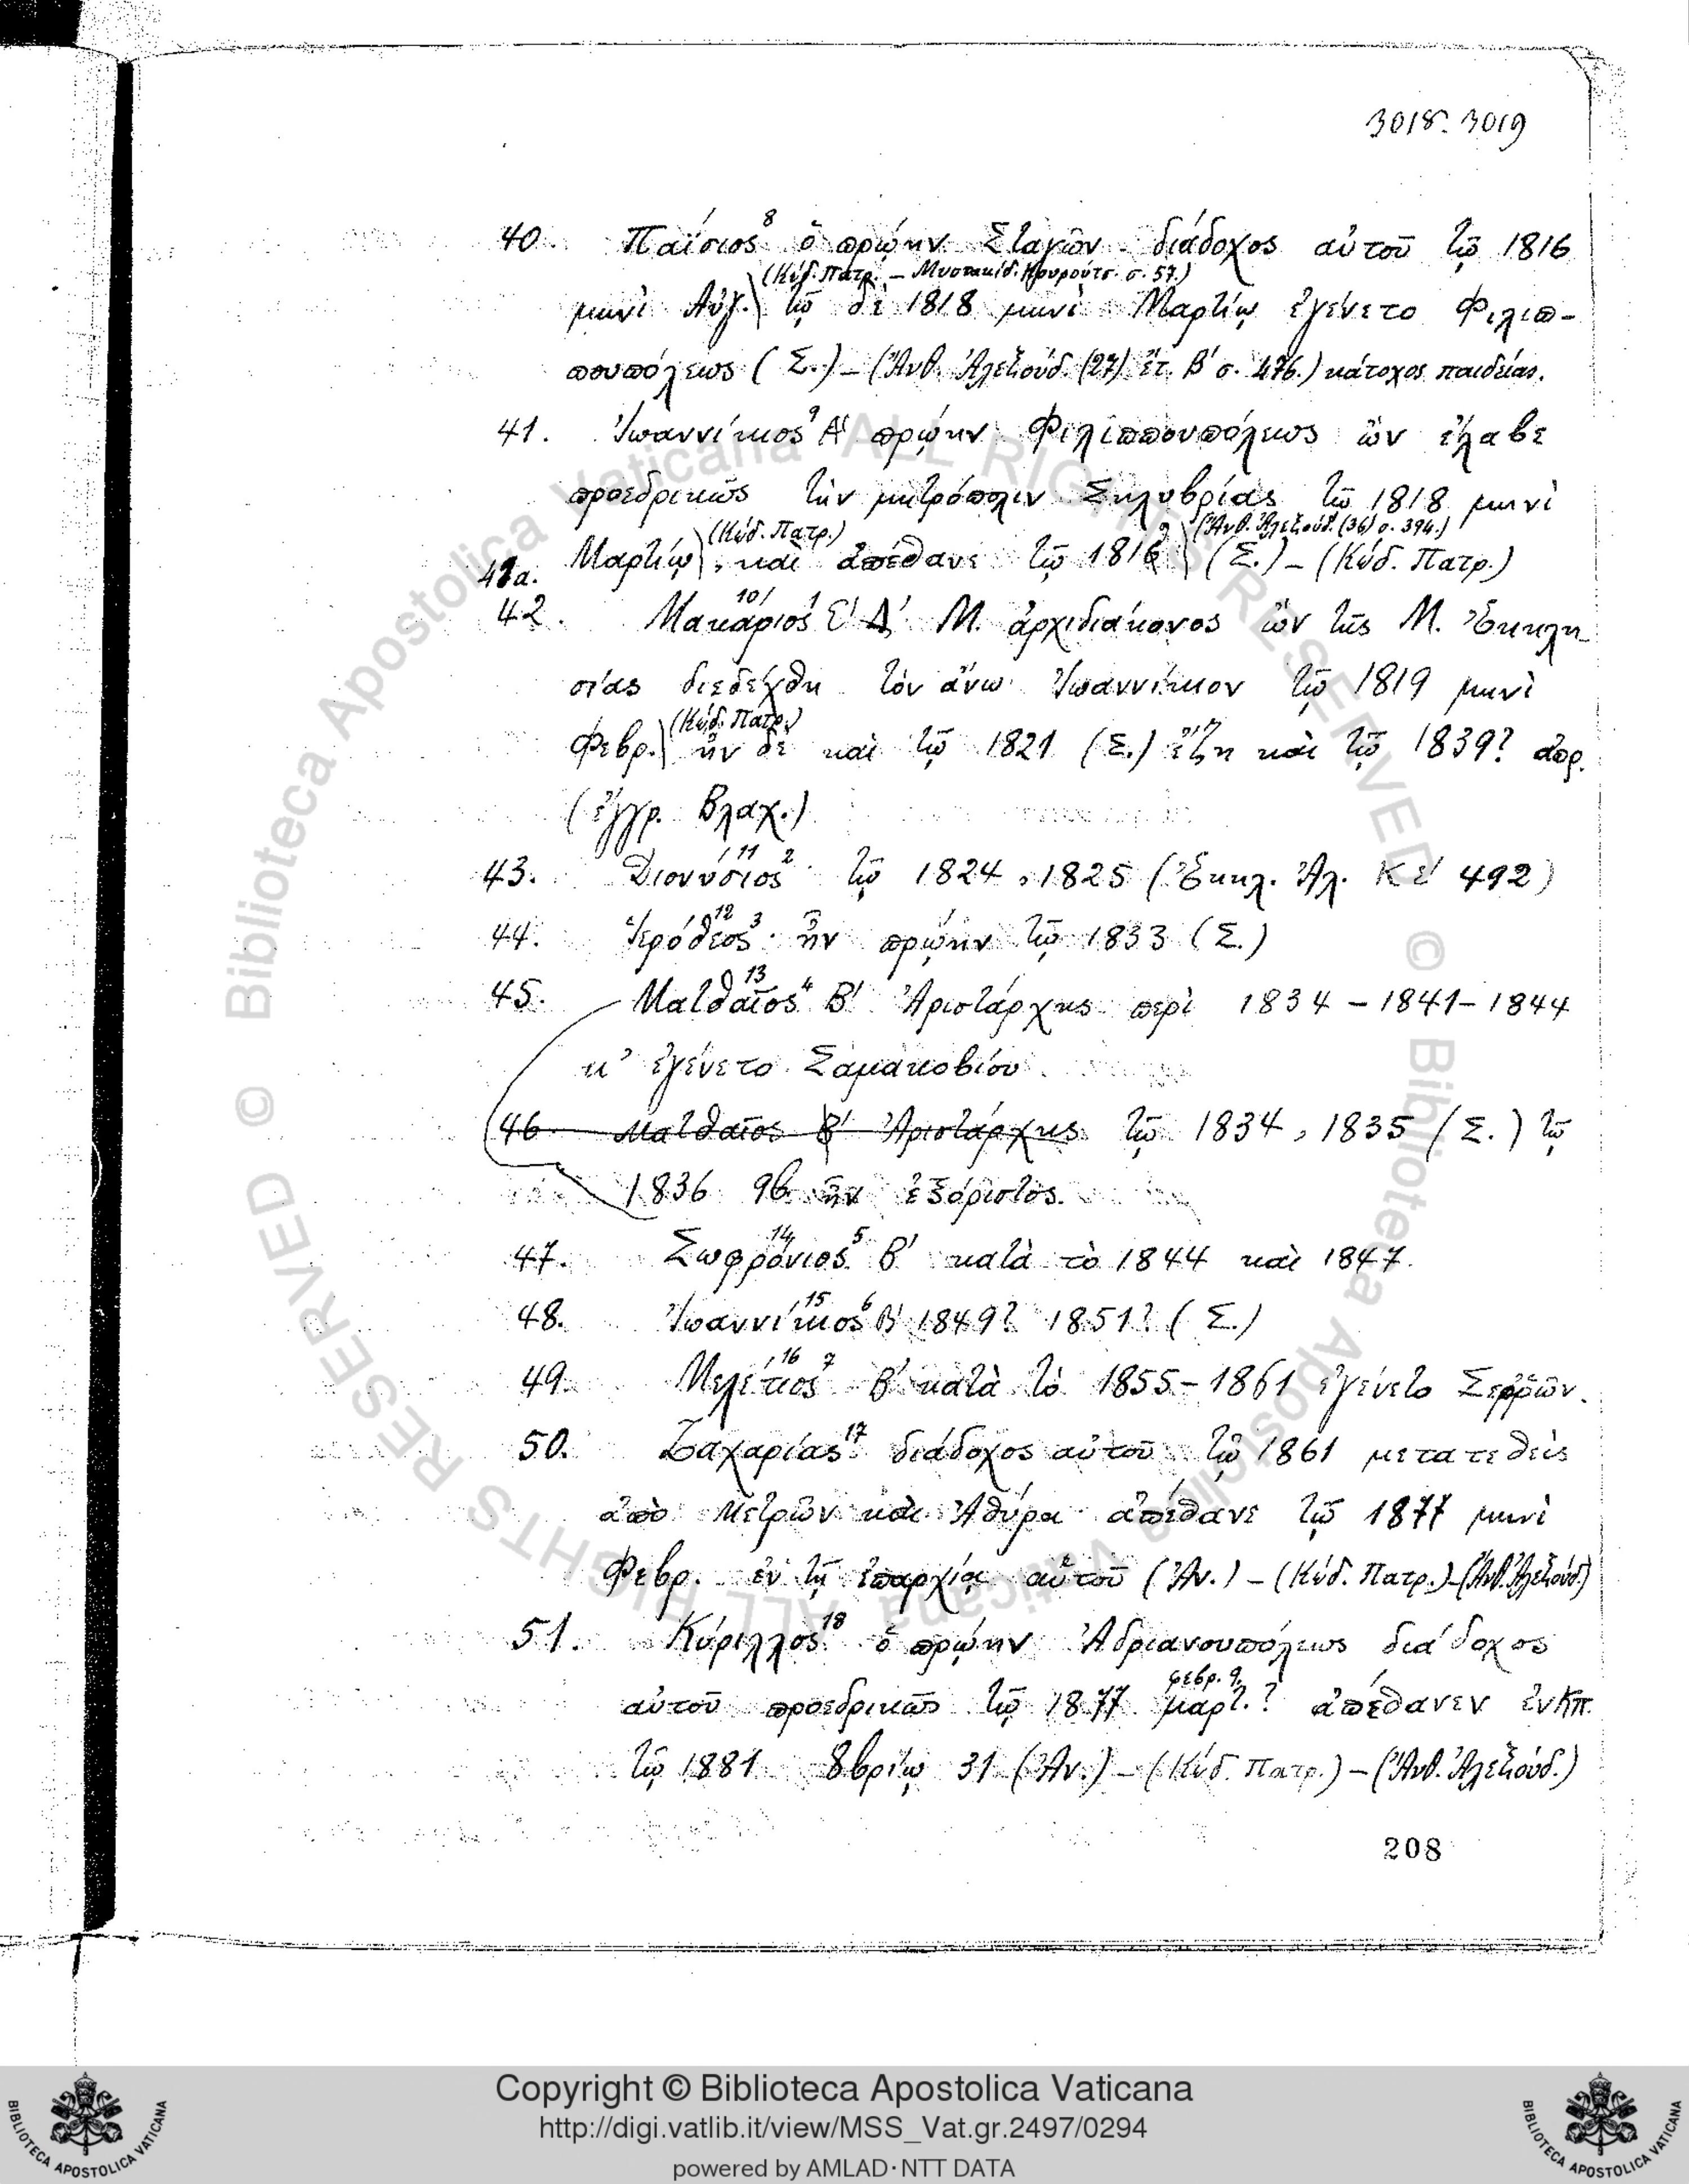 3018. 3019
40. Παΐσιος⁸ ὁ πρώην Σταγῶν διάδοχος αὐτοῦ τῷ 1816
(Κώδ. Πατρ. – Μυστακίδ. Κουρούτσ. σ. 57.)
μηνὶ Αὐγ. τῷ δὲ 1818 μηνὶ Μαρτίῳ ἐγένετο Φιλιπ-
πουπόλεως (Σ.) – (Ἀνθ. Ἀλεξούδ. (27) ἔτ. Β′ σ. 476.) κάτοχος παιδείας.
41. Ἰωαννίκιος⁹ Α′ πρώην Φιλιππουπόλεως ὢν ἔλαβε
προεδρικῶς τὴν μητρόπολιν Σηλυβρίας τῷ 1818 μηνὶ
(Κώδ. Πατρ.) (Ἀνθ. Ἀλεξούδ. (36) σ. 394.)
Μαρτίῳ, καὶ ἀπέθανε τῷ 181 (Σ.) – (Κώδ. Πατρ.)
41α.
42. Μακάριος¹⁰ ¹ Δ′ Μ. ἀρχιδιάκονος ὢν τῆς Μ. Ἐκκλη-
σίας διεδέχθη τὸν ἄνω Ἰωαννίκιον τῷ 1819 μηνὶ
(Κώδ. Πατρ.)
Φεβρ. ἦν δὲ καὶ τῷ 1821 (Σ.) ἔζη καὶ τῷ 1839? ἀπρ.
(ἔγγρ. Βλαχ.)
43. Διονύσιος¹¹ ² τῷ 1824, 1825 (Ἐκκλ. Ἀλ. Κε′ 492)
44. Ἱερόθεος¹² ³ ἦν πρώην τῷ 1833 (Σ.)
45. Ματθαῖος¹³ ⁴ Β′ Ἀριστάρχης περὶ 1834 – 1841 – 1844
κ' ἐγένετο Σαμακοβίου.
46 Ματθαῖος Β′ Ἀριστάρχης τῷ 1834, 1835 (Σ.) τῷ
1836 9β ἦν ἐξόριστος.
47. Σωφρόνιος¹⁴ ⁵ Β′ κατὰ τὸ 1844 καὶ 1847.
48. Ἰωαννίκιος¹⁵ ⁶ Β′ 1849? 1851? (Σ.)
49. Μελέτιος¹⁶ ⁷ Β′ κατὰ τὸ 1855 – 1861 ἐγένετο Σερρῶν.
50. Ζαχαρίας¹⁷ διάδοχος αὐτοῦ τῷ 1861 μετατεθεὶς
ἀπὸ Μετρῶν καὶ Ἀθύρα ἀπέθανε τῷ 1877 μηνὶ
Φεβρ. ἐν τῇ ἐπαρχίᾳ αὐτοῦ (Ἀν.) – (Κώδ. Πατρ.) – (Ἀνθ. Ἀλεξούδ.)
51. Κύριλλος¹⁸ ὁ πρώην Ἀδριανουπόλεως διάδοχος
φεβρ. 9.
αὐτοῦ προεδρικῶς τῷ 1877 μαρτ.? ἀπέθανεν ἐν ΚΠ.
τῷ 1881 8βρίῳ 31 (Ἀν.) – (Κώδ. Πατρ.) – (Ἀνθ. Ἀλεξούδ.)
208
© Biblioteca Apostolica Vaticana ALL RIGHTS RESERVED © Biblioteca Apostolica Vaticana ALL RIGHTS RESERVED
Copyright © Biblioteca Apostolica Vaticana
http://digi.vatlib.it/view/MSS_Vat.gr.2497/0294
powered by AMLAD·NTT DATA
BIBLIOTECA APOSTOLICA VATICANA
BIBLIOTECA APOSTOLICA VATICANA